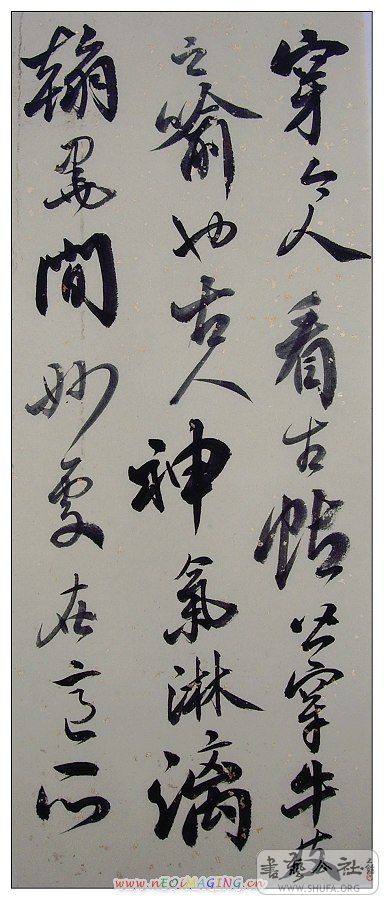 穿今人看古帖皆穿牛皮
之喻也古人神氣淋漓
翰墨間妙處在意所
www.nEOIMAGING.cn
WWW.SHUFA.ORG